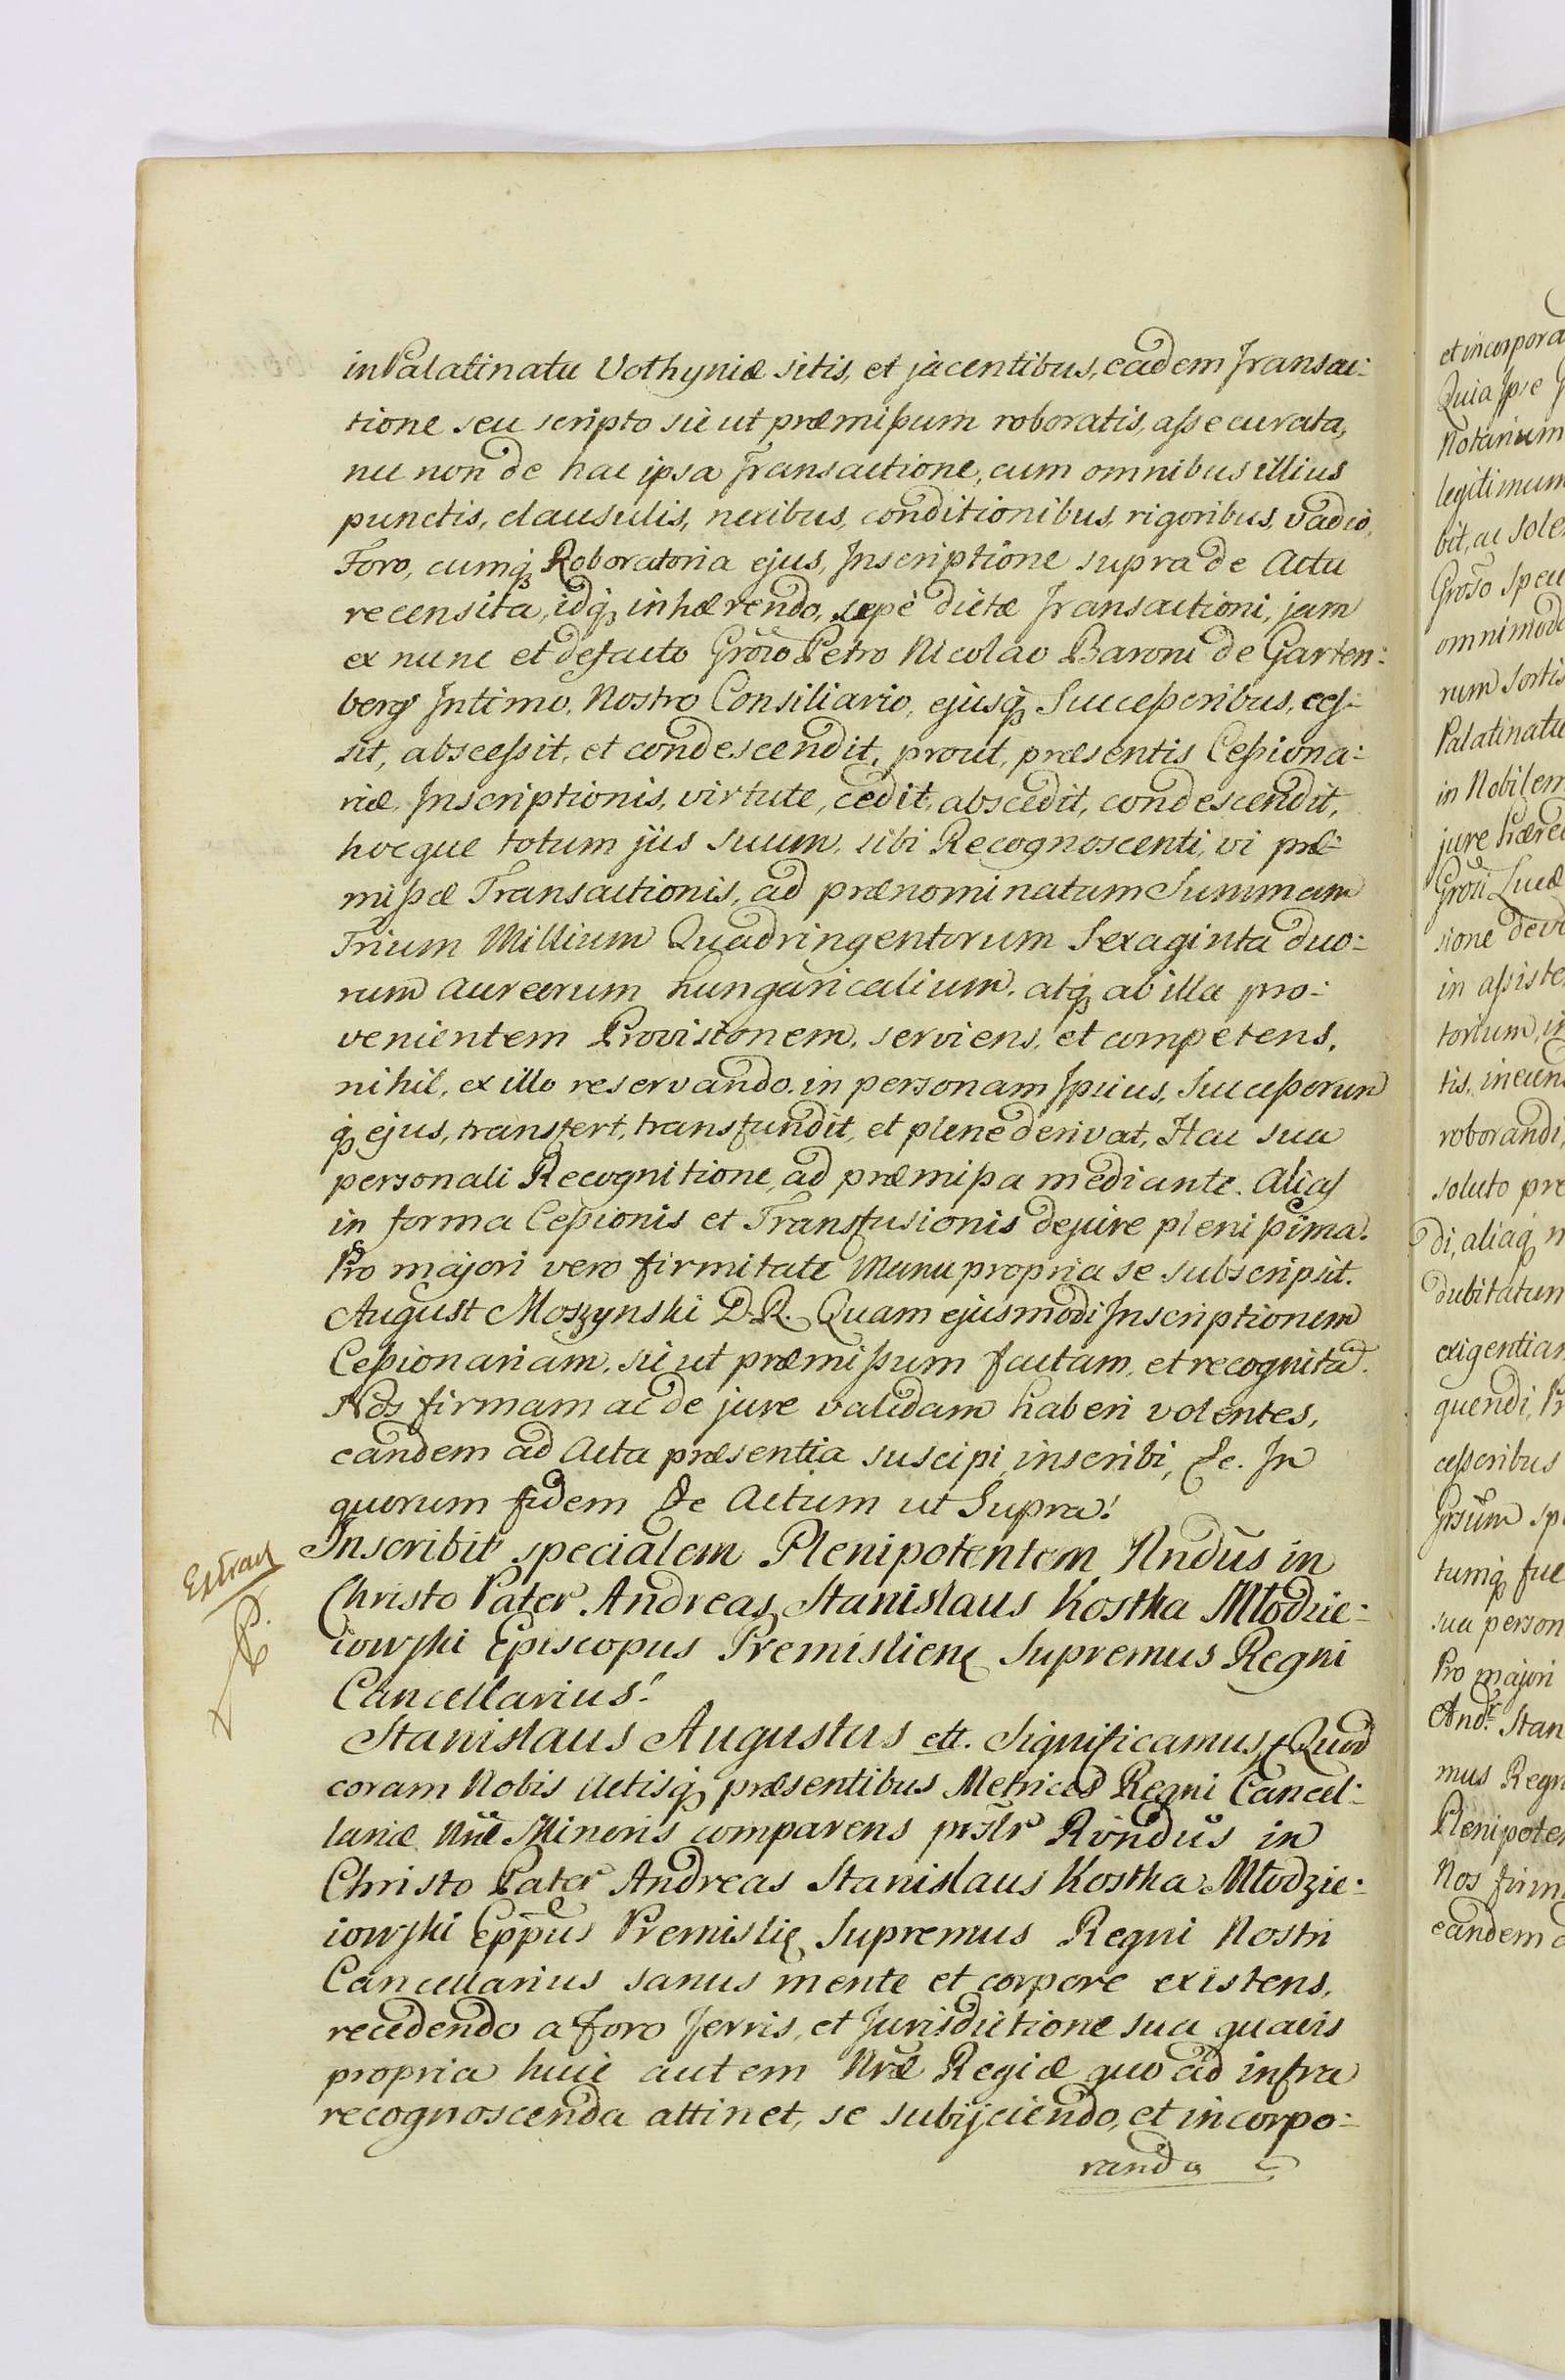 in Palatinatu Volhyniæ sitis, et jacentibus, eadem Transac:
tione seu scripto sic ut præmissum roboratis, assecurata,
nec non de hac ipsa Transactione, cum omnibus illius
punctis, clausulis, nexibus, conditionibus, rigoribus, vadio,
Foro, cumq; Roboratoria ejus, Inscriptione supra de Actu
recensita, idq; inhærendo, sæpè dictæ Transactioni, jam
ex nunc et defacto Groso Petro Nicolao Baroni de Garten:
berg Intimo, Nostro Consiliario, ejusq; Successoribus, ces:
sit, abscessit, et condescendit, prout, præsentis Cessiona:
riæ, Inscriptionis, virtute, cedit, abscedit, condescendit,
hocque totum jus suum, sibi Recognoscenti, vi præ:
missæ Transactionis, ad prænominatam Summam
Trium Millium Quadringentorum Sexaginta duo:
rum Aureorum hungaricalium. atq; ab illa pro:
venientem Provisionem, serviens, et competens,
nihil, ex illo reservando. in personam Ipsius, Successorum
q; ejus, transfert, transfundit, et plene derivat, Hac sua
personali Recognitione, ad præmissa mediante. Alias
in forma Cessionis et Transfusionis dejure plenissima.
Pro majori vero firmitate Manu propria se subscripsit.
August Moszynski D.R. Quam ejusmodi Inscriptionem
Cessionariam, sic ut præmissum factam, et recognitā.
Nos firmam ac de jure validam haberi volentes,
eandem ad Acta præsentia suscipi, inscribi, &c. In
quorum fidem &c Actum ut Supra.
Extrad
Inscribit specialem Plenipotentem Rndūs in
Christo Pater Andreas Stanislaus Kostka Młodzie:
iowski Episcopus Premisliens Supremus Regni
Cancellarius.
Stanislaus Augustus ett. Significamus & Quod
coram Nobis Actisq; præsentibus Metrices Regni Cancel:
lariæ Nræ Minoris comparens prslr Rvndūs in
Christo Pater Andreas Stanislaus Kostka Młodzie:
iowski Eppūs Premislis Supremus Regni Nostri
Cancellarius sanus mente et corpore existens,
recedendo a foro Terris, et Jurisdictione sua quavis
propria huic autem Nræ Regiæ quo ad infra
recognoscenda attinet, se subijciendo, et incorpo:
rando
et incorpora
Quia Ipse
Notarium
legitimum
bit, ac sole
Groso spec
omnimod
rum sortis
Palatinatu
in Nobilem
jure hære
Grosi Lucæ
sione
in assiste
torium, in
tis, ineun
roborandi,
soluto pre
di, aliaq; n
dubitatum
exigentiam
quendi, Pr
cessoribus
Grsum sp
tumq; fue
sua person
Pro majori
And. Stan
mus Regn
Plenipoten
Nos firm
eandem a